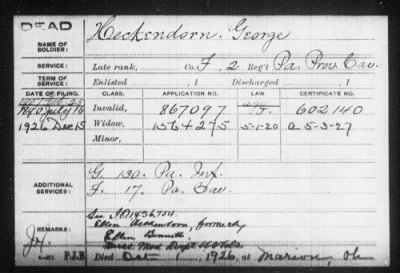 DEAD
Heckendorn, George
NAME OF SOLDIER:
SERVICE: Late rank, Co. F, 2 Reg't Pa. Prov. Cav.
TERM OF SERVICE: Enlisted , 1 Discharged , 1
DATE OF FILING. CLASS. APPLICATION NO. LAW. CERTIFICATE NO.
1890 July 16 Invalid, 867097 602140
1926 Dec 15 Widow, 1564275 5-1-20 a 5-3-27
Minor,
ADDITIONAL SERVICES:
G. 130. Pa. Inf.
F. 17. Pa. Cav.
REMARKS:
Ellen Heckendorn, formerly
Ellen Bennett
P.J.B Died Oct 1, 1926, at Marion, Oh